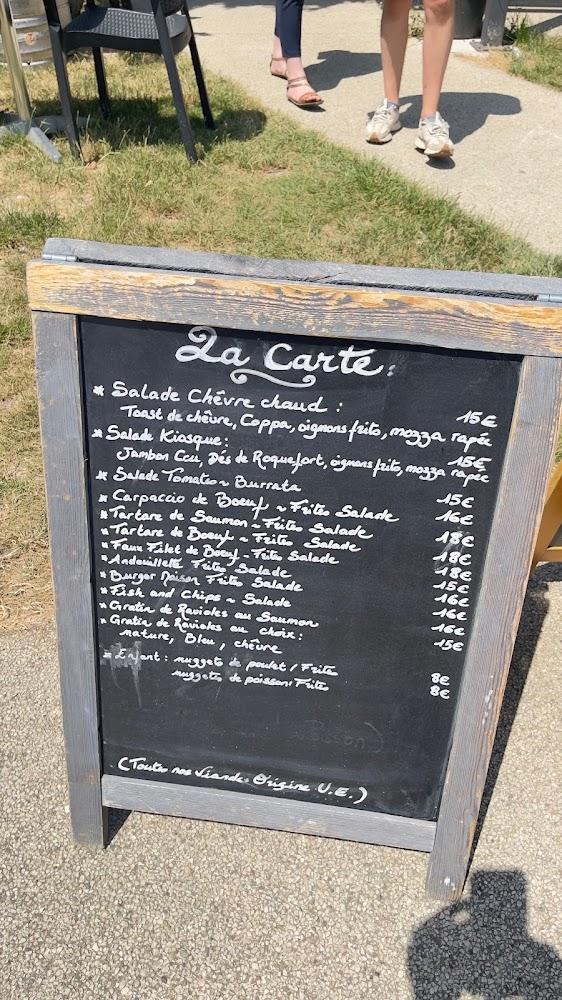 La Carte:
* Salade Chêvre chaud : 15€
Toast de chêvre, Coppa, oignons frits, mozza rapée
* Salade Kiosque: 15€
Jambon Cru, Dés de Roquefort, oignons frits, mozza rapée
* Salade Tomates ~ Burrata 15€
* Carpaccio de Boeuf ~ Frites Salade 16€
* Tartare de Saumon ~ Frites Salade 18€
* Tartare de Boeuf ~ Frites Salade 18€
* Faux Filet de Boeuf - Frites Salade 18€
* Andouillette Frites Salade 15€
* Burger Maison Frites Salade 16€
* Fish and Chips ~ Salade 16€
* Gratin de Ravioles au Saumon 16€
* Gratin de Ravioles au choix: 15€
nature, Bleu, chêvre
* Enfant : nuggets de poulet / Frites 8€
nuggets de poisson / Frites 8€
(Toutes nos viandes Origine U.E.)